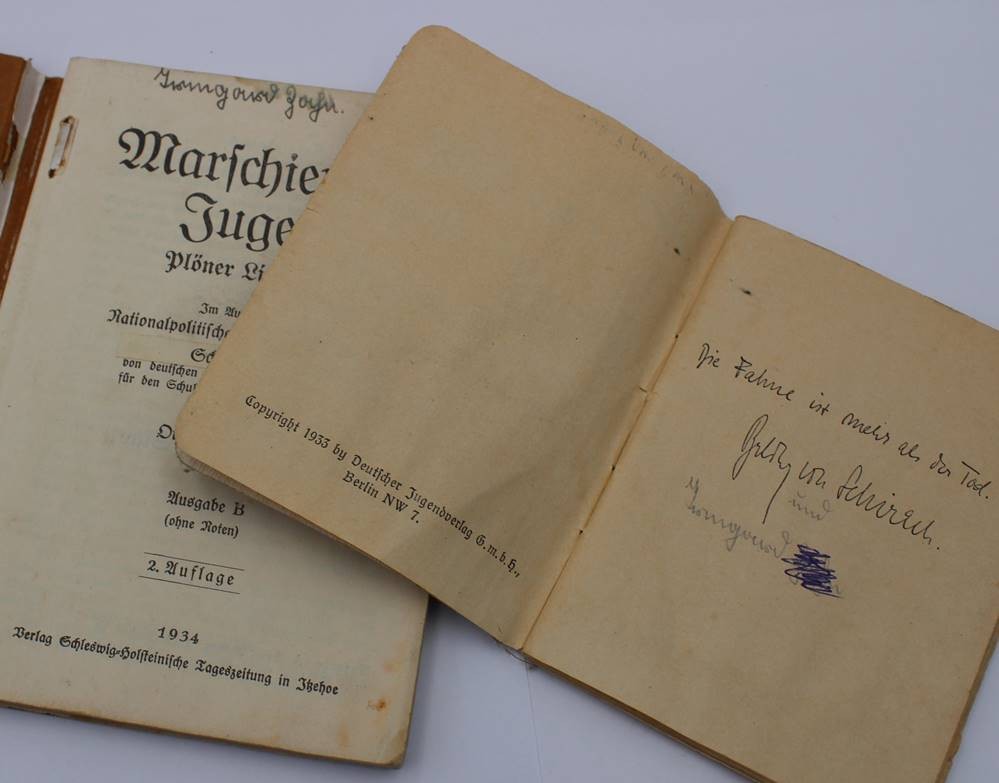 Irmgard Zahn.
Marſchie
Juge
Plöner Li
Im Au
Nationalpolitiſche
Sc
von deutſchen
für den Schul
Ausgabe B
(ohne Noten)
2. Auflage
1934
Verlag Schleswig-Holſteiniſche Tageszeitung in Itzehoe
Copyright 1933 by Deutſcher Jugendverlag G. m. b. H.,
Berlin NW 7.
Die Fahne ist mehr als der Tod.
Baldur von Schirach.
und
Irmgard